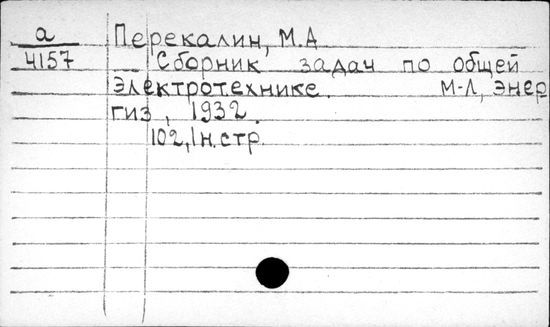 а Перекалин, М.А
4157 Сборник задач по общей
электротехнике. М-Л, Энер
гиз, 1932.
102,1н.стр.